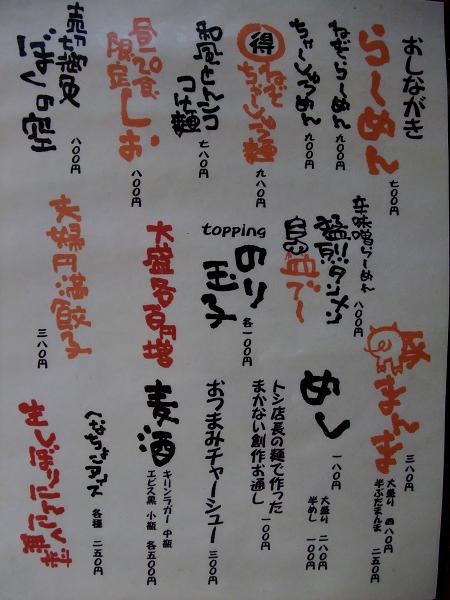 おしながき
らーめん 七〇〇円
ねぎらーめん 九〇〇円
ちゃーしゅうめん 九〇〇円
得 ねぎちゃーしゅう麺 九八〇円
和風 麺 七八〇円
昼20食限定しお 八〇〇円
売切御免 ぼくの空 八〇〇円
辛味噌らーめん 八〇〇円
タンメン
topping
のり
玉子 各一〇〇円
大盛各百円増
大揚円満餃子 三八〇円
まんま 三八〇円
大盛り 四八〇円
半ぶたまんま 二五〇円
めし 一八〇円
大盛り 二八〇円
半めし 一〇〇円
トシ店長の麺で作った
まかない創作お通し 一〇〇円
おつまみチャーシュー 三〇〇円
麦酒
キリンラガー 中瓶
エビス黒 小瓶 各五〇〇円
各種 二五〇円